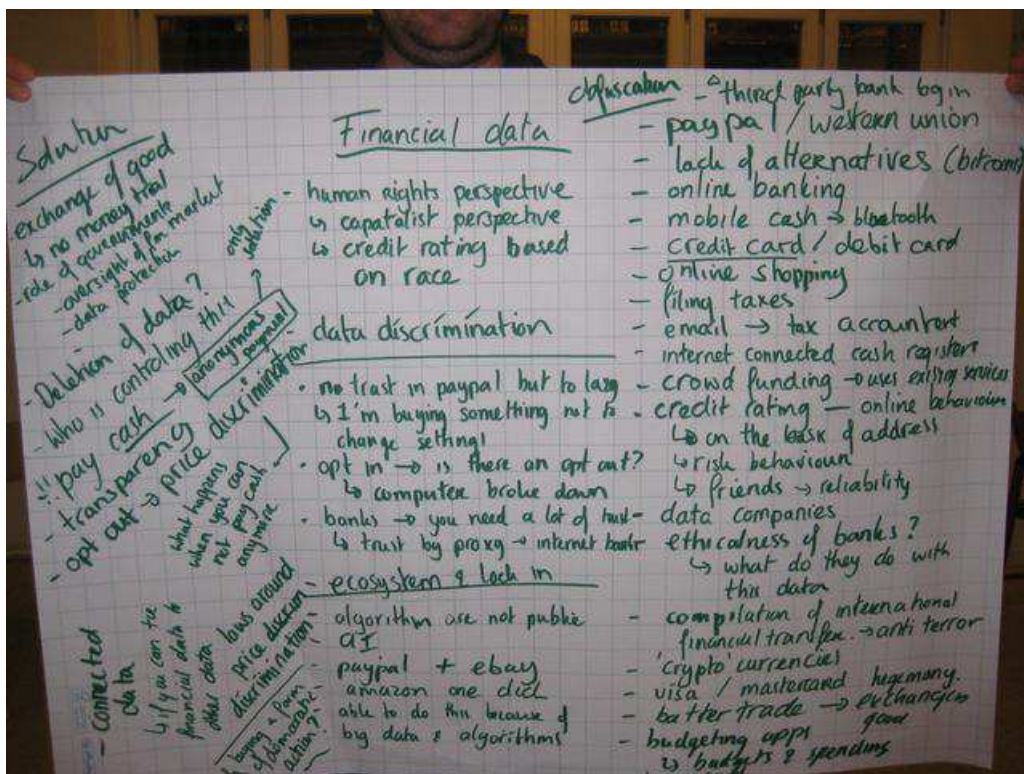 Solution
- exchange of good
↳ no money trial
- role of governments
- oversight of fin market
- data protection
- Deletion of data?
- Who is controling this
!! pay cash → anonymous payment
only solution
- transparency
- opt out → price discrimination
what happens
when you can
not pay cash
anymore
- Connected
data
↳ if you can tie
financial data to
other data
laws around
price discrim
discrimination
buying a form
of democratic
action?
Financial data
- human rights perspective
↳ capatalist perspective
↳ credit rating based
on race
- data discrimination
• no trust in paypal but to lazy
↳ I'm buying something not to
change setting!
• opt in → is there an opt out?
↳ computer broke down
• banks → you need a lot of trust
↳ trust by proxy → internet bank
- ecosystem & lock in
- algorithm are not public
AI
- paypal + ebay
amazon one click
able to do this because of
big data & algorithms
obfuscation - third party bank log in
- paypal / western union
- lack of alternatives (bitcoins)
- online banking
- mobile cash → bluetooth
- credit card / debit card
- online shopping
- filing taxes
- email → tax accountant
- internet connected cash registers
- crowd funding → uses existing services
- credit rating — online behaviour
↳ on the basis of address
↳ risk behaviour
↳ friends → reliability
- data companies
ethicalness of banks?
↳ what do they do with
this data
- compilation of international
financial transfer → anti terror
- 'crypto' currencies
- visa / mastercard hegemony
- batter trade → exchanging
good
- budgeting apps
↳ budgets & spending